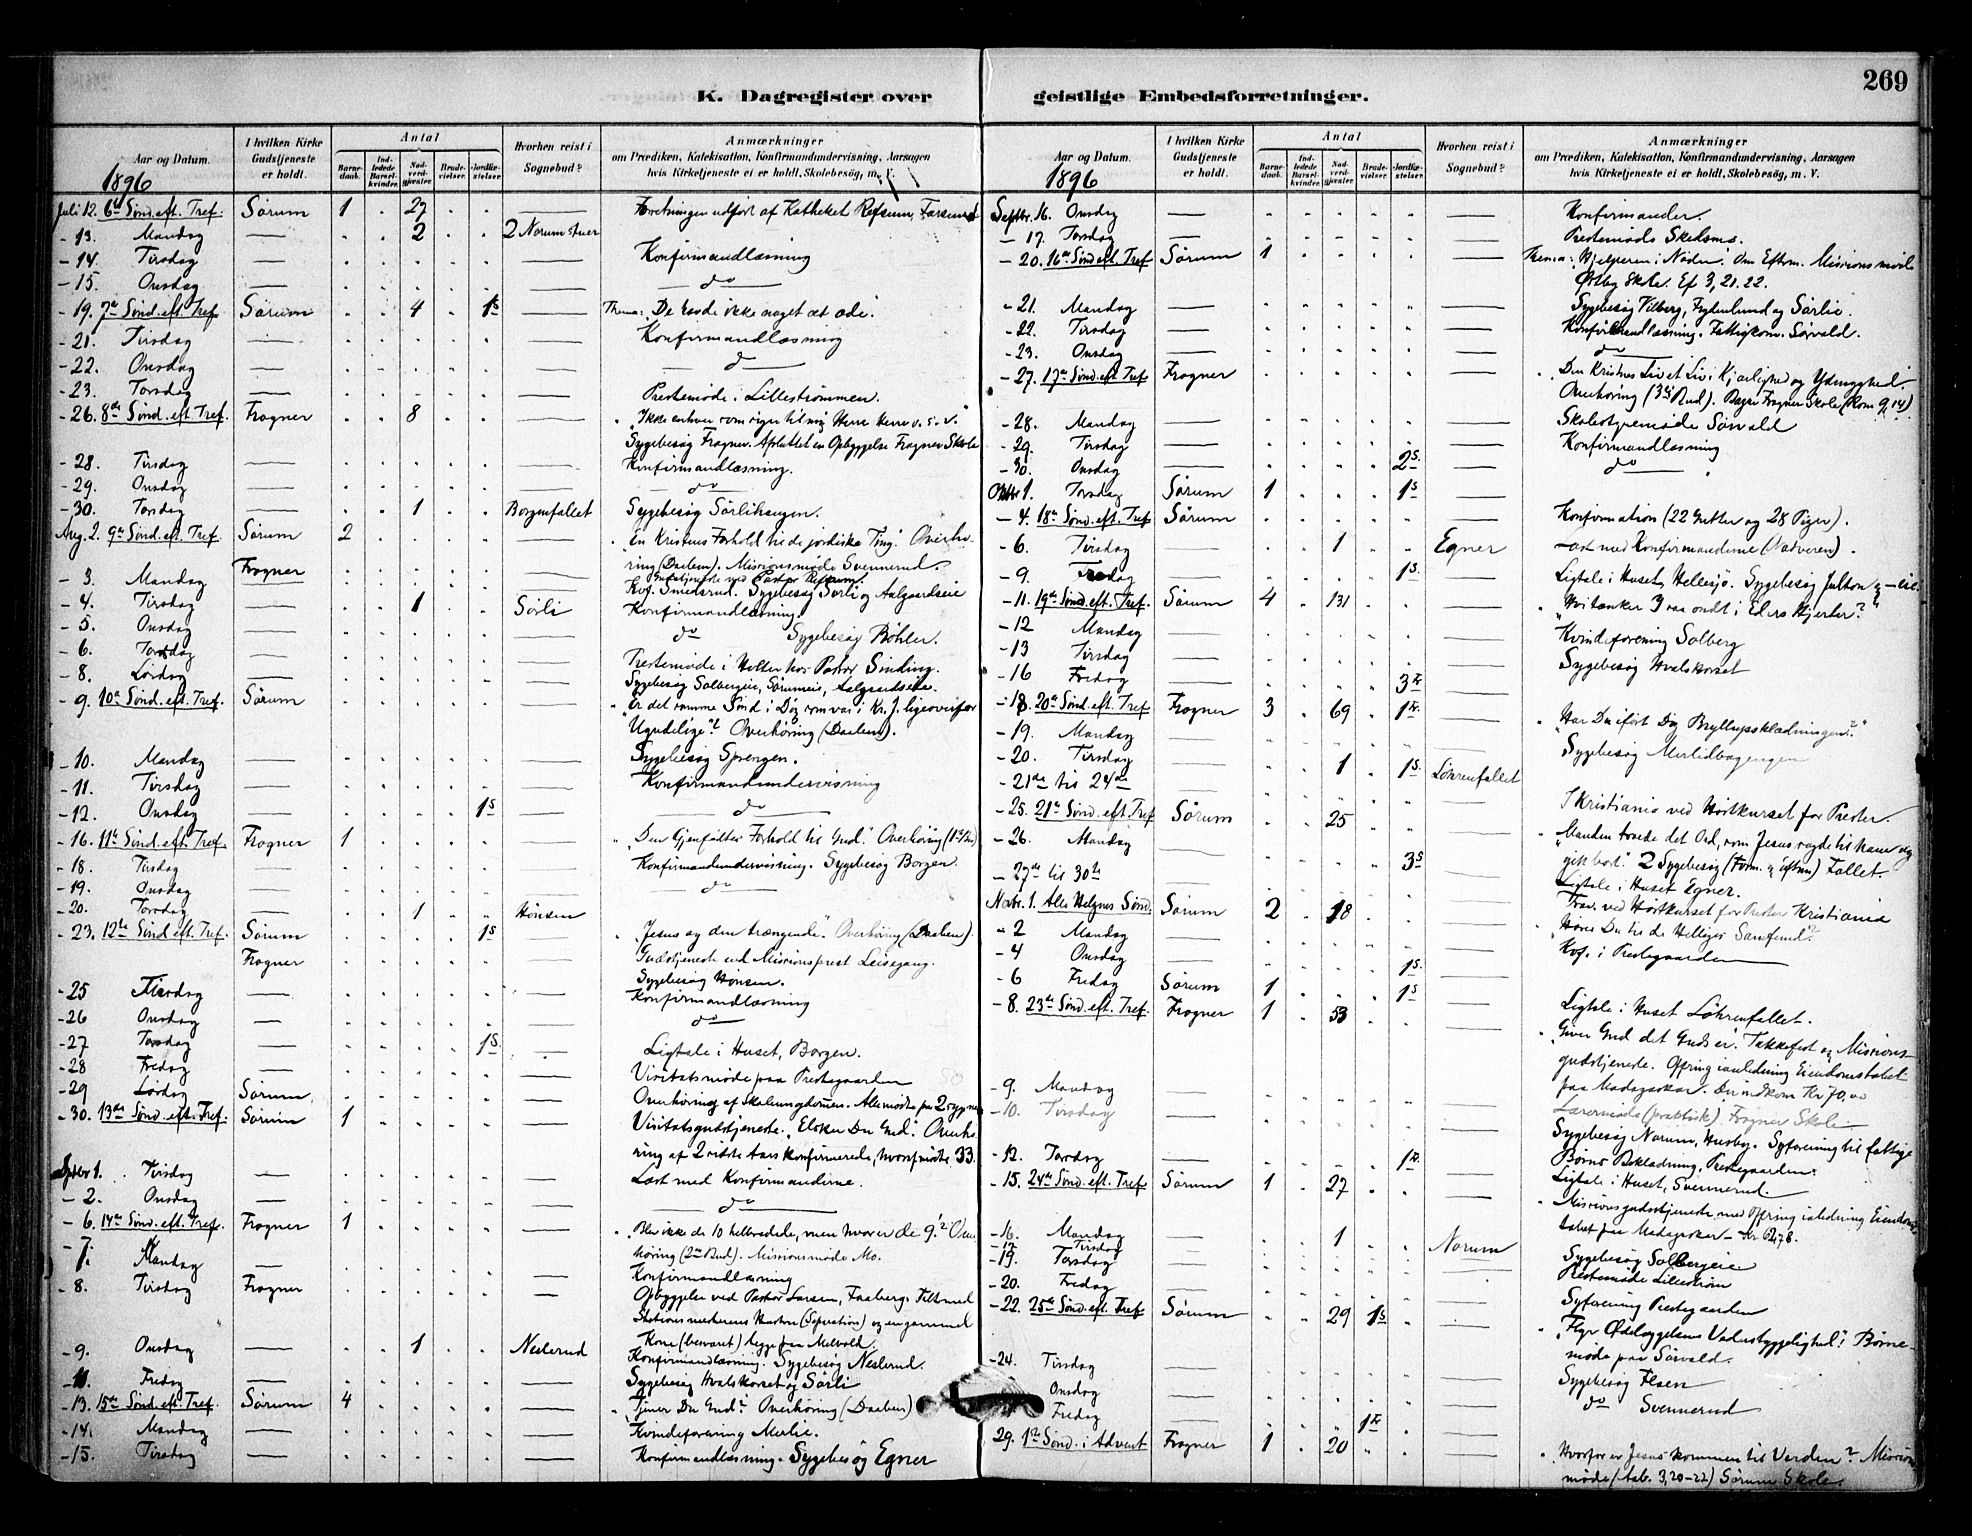 269
K. Dagregister over geistlige Embedsforretninger.
Aar og Datum. I hvilken Kirke Gudstjeneste er holdt. Antal Barnedaab. Indledede Barselkvinder. Nadverdgjæster. Brudevielser. Jordfæstelser. Hvorhen reist i Sognebud? Anmærkninger om Prædiken, Katekisation, Konfirmandundervisning, Aarsagen hvis Kirketjeneste ei er holdt, Skolebesøg, m. V.
1896
Juli 12. 6te Sønd. eft. Tref. Sørum 1 27 Forretningen udført af Katheket Refsum,
- 13. Mandag 2 2 Norum
- 14. Tirsdag Konfirmandlæsning
- 15. Onsdag do
- 19. 7de Sønd. eft. Tref. Sørum 4 1S Thema: "De havde ikke noget at æde".
- 21. Tirsdag Konfirmandlæsning
- 22. Onsdag do
- 23. Torsdag Prestemøde i Lillestrømmen.
- 26. 8de Sønd. eft. Tref. Frogner 8 "Ikke enhver som siger til mig Herre Herre o. s. v."
Sygebesøg Frogner. Opbyggelse Frogner Skole
- 28. Tirsdag Konfirmandlæsning.
- 29. Onsdag do
- 30. Torsdag 1 Borgenfallet Sygebesøg Sørlihaugen.
Aug. 2. 9de Sønd. eft. Tref. Sørum 2 "En Kristens Forhold til de jordiske Ting". Overhø-
ring (Daaben). Missionsmøde Svennerud.
Frogner Gudstjeneste ved Pastor Refsum.
- 3. Mandag Kvf. Smedsrud. Sygebesøg Sørli og Aalgaardseie
- 4. Tirsdag 1 Sørli Konfirmandlæsning
- 5. Onsdag do Sygebesøg Bøhler.
- 6. Torsdag Prestemøde i Hølter hos Pastor Sinding.
- 8. Lørdag Sygebesøg Solbergeie, Sørumeie, Aalgaardseie.
- 9. 10de Sønd. eft. Tref. Sørum "Er det samme Sind i Dig som var i Kr. J. ligeoverfor
Ugudelige"? Overhøring (Daaben).
- 10. Mandag Sygebesøg Sprengen.
- 11. Tirsdag Konfirmandundervisning
- 12. Onsdag 1S do
- 16. 11te Sønd. eft. Tref. Frogner 1 "Den Gjenfødtes Forhold til Gud". Overhøring
- 18. Tirsdag Konfirmandundervisning. Sygebesøg Borgen.
- 19. Onsdag do
- 20. Torsdag 1 Hønsen
- 23. 12te Sønd. eft. Tref. Sørum 1S "Jesus og den trængende". Overhøring (Daaben).
Frogner Gudstjeneste ved Missionsprest Leisegang.
Sygebesøg Hønsen.
- 25 Tirsdag Konfirmandlæsning
- 26 Onsdag do
- 27 Torsdag 1S Ligtale i Huset, Borgen.
- 28 Fredag Visitatsmøde paa Prestegaarden
- 29 Lørdag Sørum, Overhøring af Skoleungdommen. Alle mødte paa 2 syge nær
- 30. 13de Sønd. eft. Tref. Sørum 1 Visitatsgudstjeneste. "Elsker Du Gud". Overhø-
ring af 2 sidste Aars Konfirmerede, hvoraf mødte 33.
Septbr 1. Tirsdag Læst med Konfirmanderne.
- 2. Onsdag do
- 6. 14de Sønd. eft. Tref. Frogner 1 "Blev ikke de 10 helbredede, men hvor er de 9"? Over-
høring (2den Bud). Missionsmøde Mo.
- 7. Mandag Konfirmandlæsning
- 8. Tirsdag Frogner Opbyggelse ved Pastor Larsen, Faaberg. Tilkned
- 9. Onsdag 1 Neslerud Kone
Konfirmandlæsning. Sygebesøg Neslerud.
- 11. Fredag Sygebesøg Hvalskorset og Sørli
- 13. 15de Sønd. eft. Tref. Sørum 4 "Tjener Du Gud"? Overhøring (Daaben)
- 14. Mandag Kvindeforening Merlie.
- 15. Tirsdag Konfirmandlæsning. Sygebesøg Egner
Aar og Datum. I hvilken Kirke Gudstjeneste er holdt. Antal Barnedaab. Indledede Barselkvinder. Nadverdgjæster. Brudevielser. Jordfæstelser. Hvorhen reist i Sognebud? Anmærkninger om Prædiken, Katekisation, Konfirmandundervisning, Aarsagen hvis Kirketjeneste ei er holdt, Skolebesøg, m. V.
1896
Septbr. 16. Onsdag Konfirmander.
- 17. Torsdag Prestemøde Skedsmo.
- 20. 16de Sønd. eft. Tref. Sørum 1 Thema: "Hjelperen i Nøden". Om Efterm. Missionsmøde
Østby Skole. Ef 3, 21. 22.
- 21. Mandag Sygebesøg Vilberg, Frydenlund og Sørlie.
- 22. Tirsdag Konfirmandlæsning. Fattigkom. Sørvald.
- 23. Onsdag do
- 27. 17de Sønd. eft. Tref. Frogner "Den Kristnes Liv et Liv i Kjærlighed og Ydmyghed".
Overhøring (3die Bud). Frogner Skole (Rom 9, 14)
- 28. Mandag Skolestyremøde Sørvald
- 29. Tirsdag Konfirmandlæsning
- 30. Onsdag 2S do
Oktbr 1. Torsdag Sørum 1 1S
- 4. 18de Sønd. eft. Tref. Sørum Konfirmation (22 Gutter og 28 Piger).
- 6. Tirsdag 1 Egner Læst med Konfirmanderne (Nadveren).
- 9. Fredag 1S Ligtale i Huset, Hellesjø. Sygebesøg Julton
- 11. 19de Sønd. eft. Tref. Sørum 4 131 "Hvi tænker I saa ondt i Eders Hjerter"?
- 12 Mandag Kvindeforening Solberg
- 13 Tirsdag Sygebesøg Hvalskorset
- 16 Fredag 3Fr
- 18. 20de Sønd. eft. Tref. Frogner 3 69 1Fr. "Har Du iført Dig Bryllupsklædningen"?
- 19. Mandag Sygebesøg
- 20. Tirsdag 1 1S Løhrenfallet
- 21de til 24de I Kristiania ved Høstkurset for Prester.
- 25. 21de Sønd. eft. Tref Sørum 25 "Manden troede det Ord, som Jesus sagde til ham og
gik bort". 2 Sygebesøg (Form. og Efterm) Fallet.
- 26. Mandag 3S Ligtale i Huset Egner.
- 27de til 30te Frav. ved Høstkurset for Prester Kristiania
Novbr. 1. Alle Helgnes Sønd. Sørum 2 18 "Hører Du til de Helliges Samfund"?
- 2 Mandag Kvf. i Prestegaarden
- 4 Onsdag 1S.
- 6 Fredag Sørum 1 1S Ligtale i Huset Løhrenfallet.
- 8. 23de Sønd. eft. Tref. Frogner 1 53 "Giver Gud det Guds er". Takkefest og Missions-
gudstjeneste. Ofring i anledning Eiendomstabet
paa Madagaskar. Der indkom Kr 70,00
- 9. Mandag
- 10. Tirsdag Læremøde (praktisk) Frogner Skole
Sygebesøg Norum, Husby. Syforening til fattige
- 12. Torsdag 1Fr. Børns Bekladning, Prestegaarden.
- 15. 24de Sønd. eft. Tref Sørum 1 27 Ligtale i Huset, Svennerud.
Missionsgudstjeneste med Ofring i anledning Eiendoms-
tabet paa Madagaskar
- 16. Mandag 1 Norum Sygebesøg Solbergeie
- 17. Tirsdag
- 19. Torsdag Prestemøde Lillestrøm
- 20. Fredag Syforening Prestegaarden
- 22. 25de Sønd. eft. Tref Sørum 29 1S "Flyr Ødelæggelsens Vederstyggelighed". Børne-
møde paa Sørvald.
- 24. Tirsdag Sygebesøg
Onsdag do Svennerud
Fredag 1Fr
29. 1ste Sønd. i Advent Frogner 1 20 "Hvorfor er Jesus kommen til Verden"? Missions-
møde (Aab. 3, 20-22) Sørum Skole.